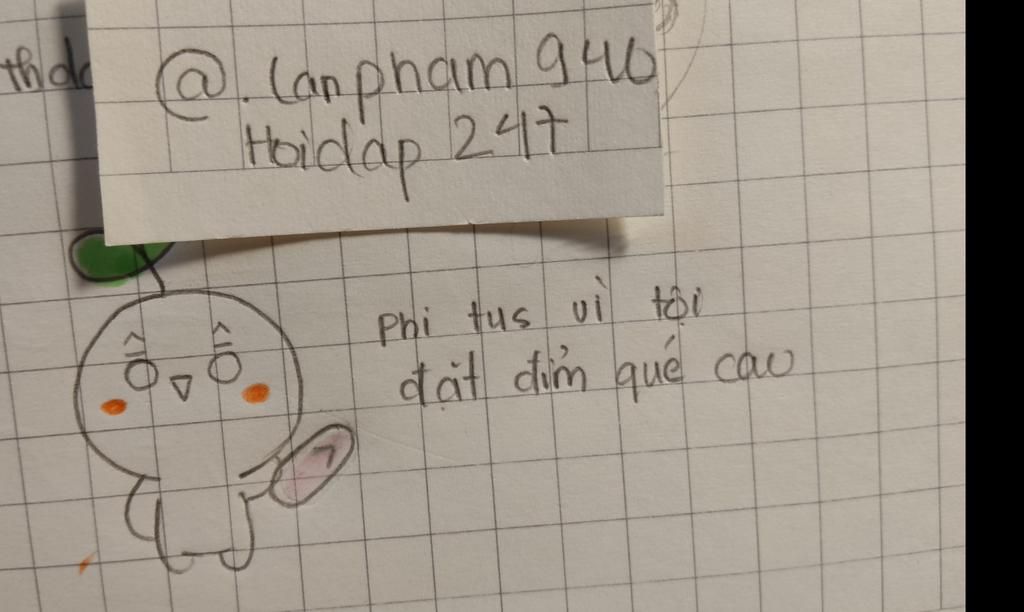 thdc
@. lanpham940
Hoidap 247
phi tus vì tội
đạt đỉm qué cao